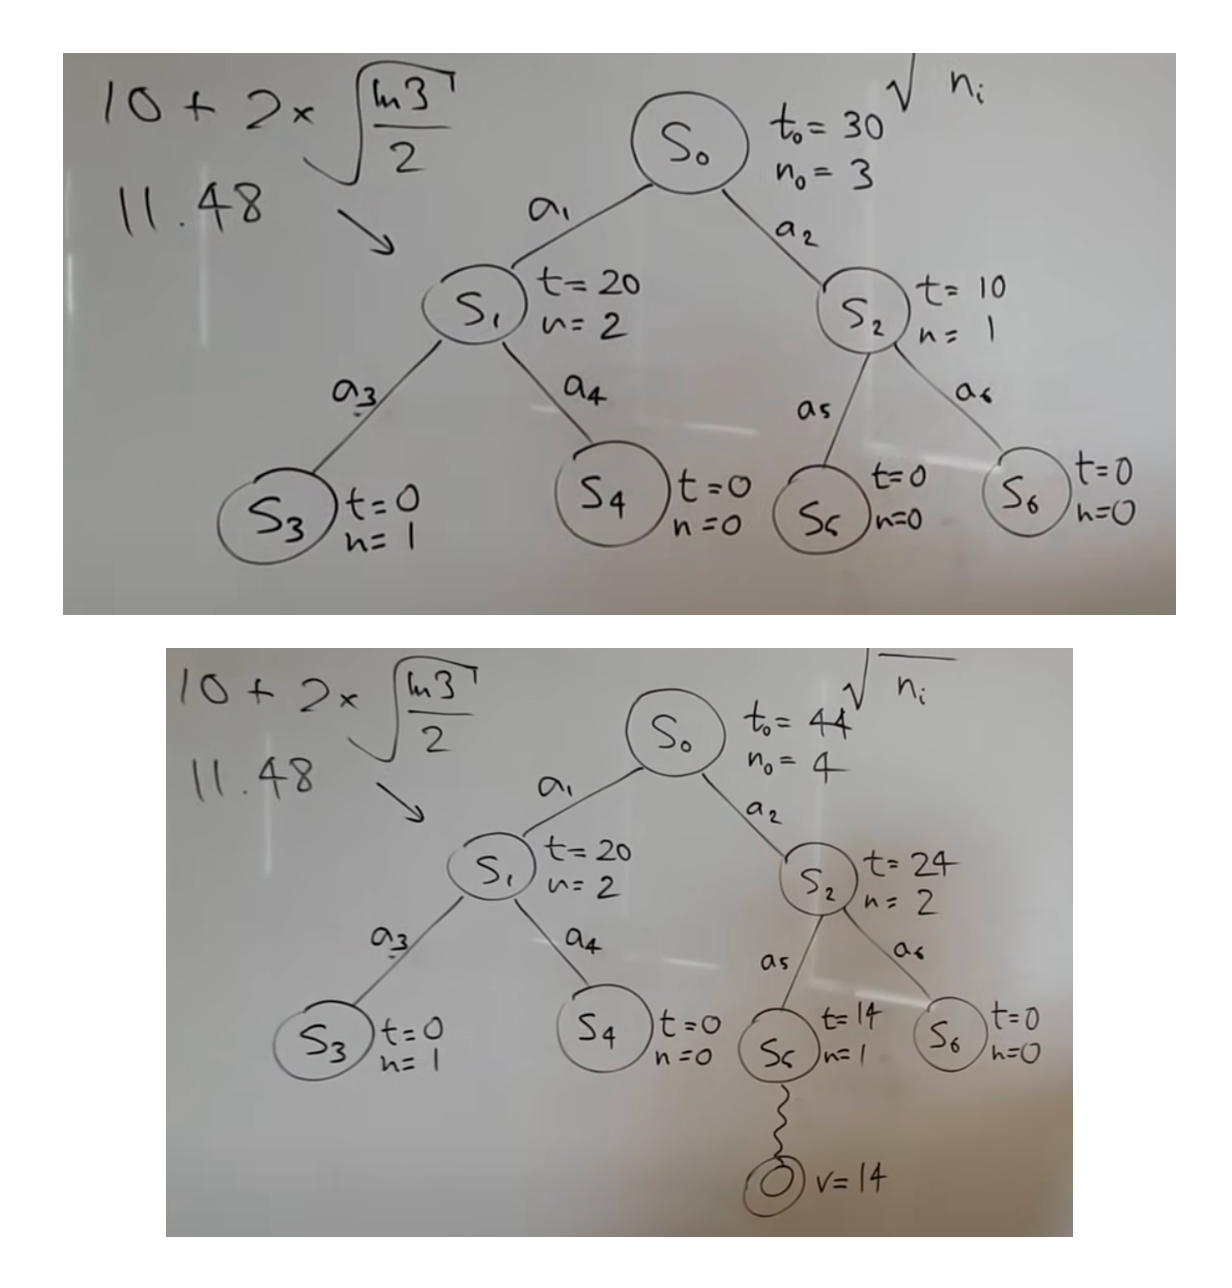 10 + 2 × √ ln 3 / 2
11.48
√ nᵢ
S₀
t₀ = 30
n₀ = 3
a₁
a₂
S₁
t = 20
n = 2
S₂
t = 10
n = 1
a₃
a₄
a₅
a₆
S₃
t = 0
n = 1
S₄
t = 0
n = 0
S₅
t = 0
n = 0
S₆
t = 0
n = 0
10 + 2 × √ ln 3 / 2
11.48
√ nᵢ
S₀
t₀ = 44
n₀ = 4
a₁
a₂
S₁
t = 20
n = 2
S₂
t = 24
n = 2
a₃
a₄
a₅
a₆
S₃
t = 0
n = 1
S₄
t = 0
n = 0
S₅
t = 14
n = 1
S₆
t = 0
n = 0
v = 14